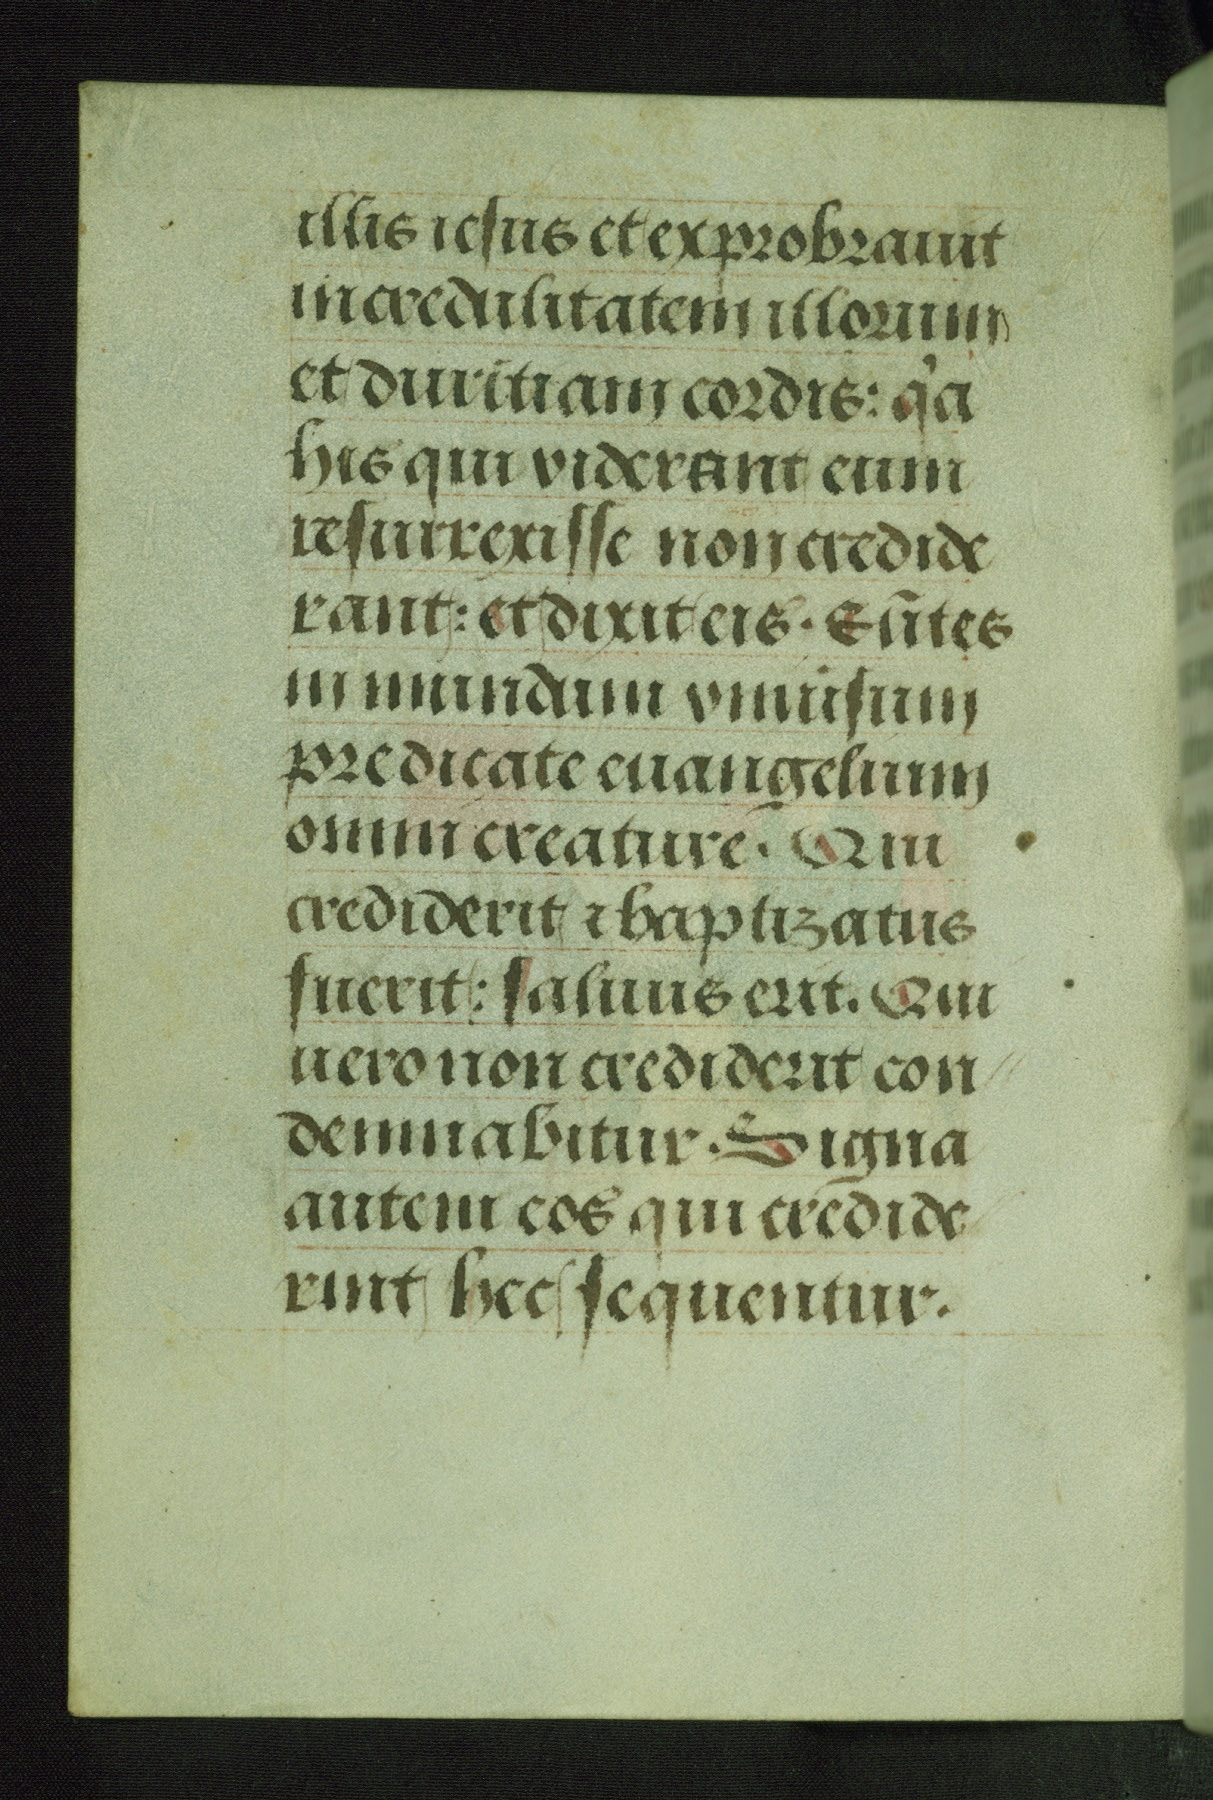 illis iesus et exprobrauit
incredulitatem illorum
et duritiam cordis: qͥa
his qui viderant eum
resurrexisse non credide
rant: et dixit eis. Eūtes
in mundum vniũsum
predicate euangelium
omni creature. Qui
crediderit ⁊ baptizatus
fuerit: saluus erit. Qui
uero non crediderit con
demnabitur. Signa
autem eos qui credide
rint hec sequentur.